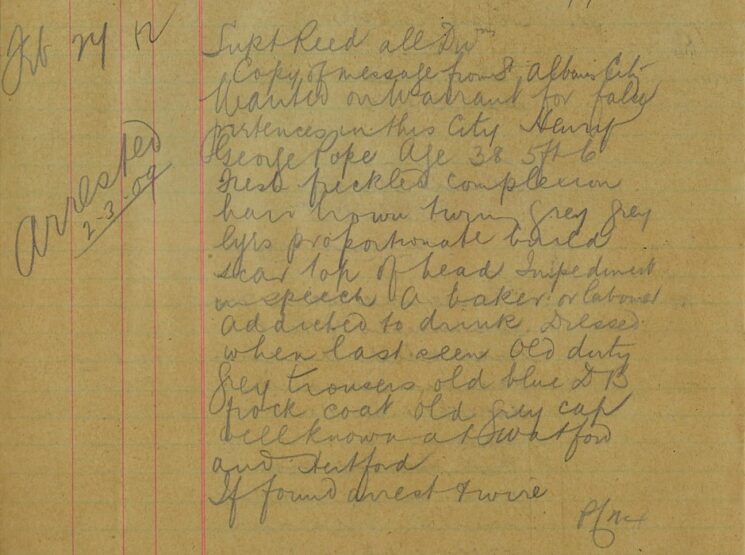 Feb 24 12 Supt Reed all Divns
Copy of message from St Albans City
Wanted on Warrant for false
pretences in this City Henry
George Pope Age 38 5ft 6
Arrested
2-3-09
Fresh freckled complexion
hair brown turning grey grey
eyes proportionate build
scar top of head Impediment
in speech A baker or labourer
addicted to drink Dressed
when last seen Old dirty
grey trousers old blue D B
frock coat old grey cap
well known at Watford
and Hertford
If found arrest & wire